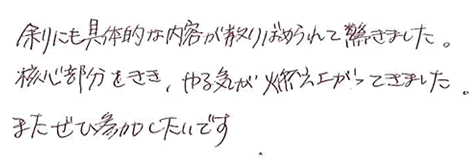 余りにも具体的な内容が散りばめられて驚きました。
核心部分をきき、やる気が燃え上がってきました。
またぜひ参加したいです